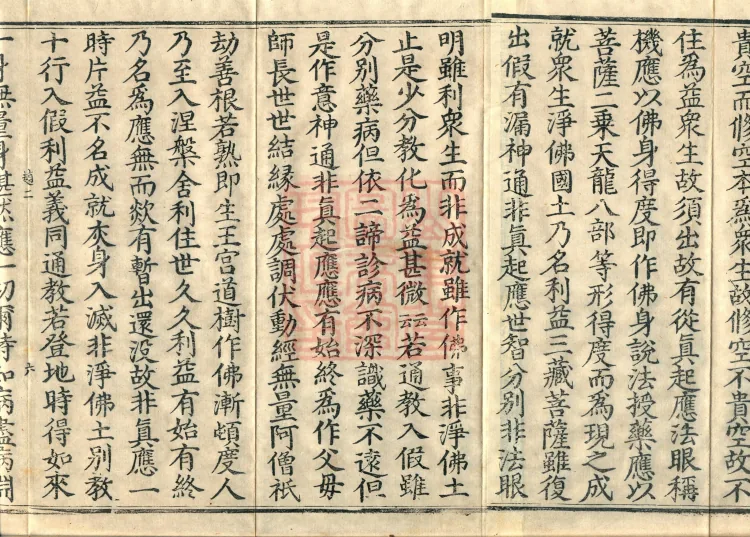 貴空而脩空本爲衆生故脩空不貴空故不
住為益衆生故須出故有從眞起應法眼稱
機應以佛身得度即作佛身說法授藥應以
菩薩二乗天龍八部等形得度而為現之成
就衆生淨佛國土乃名利益三藏菩薩雖復
出假有漏神通非眞起應世智分别非法眼
明雖利衆生而非成就雖作佛事非淨佛土
止是少分教化為益甚微云云若通教入假雖
分别藥病但依二諦診病不深識藥不遠但
是作意神通非眞起應應有始終為作父母
師長世世結緣處處調伏動經無量阿僧祇
劫善根若熟即生王宮道樹作佛漸頓度人
乃至入涅槃舍利住世久久利益有始有終
乃名爲應無而欻有暫出還没故非眞應一
時片益不名成就灰身入滅非淨佛土别教
十行入假利益義同通教若登地時得如來
一身無量身湛然應一切爾時知病盡病淵